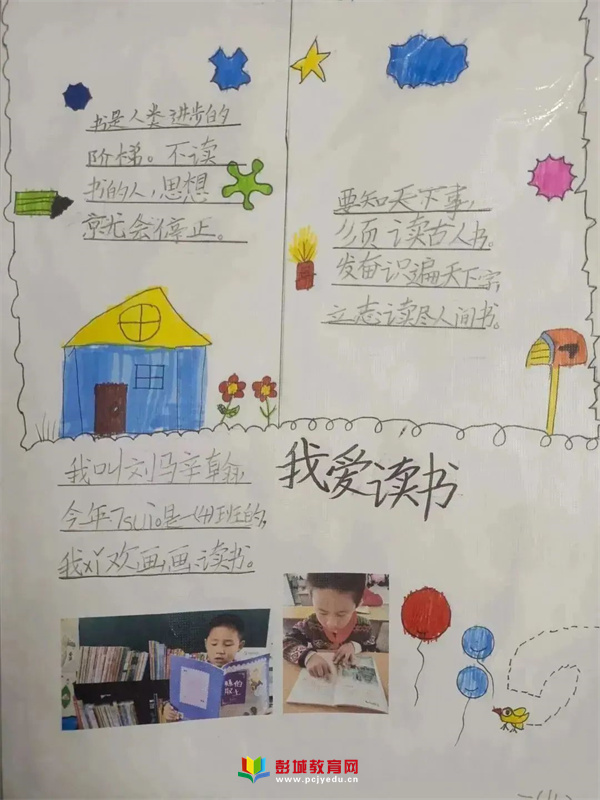 书是人类进步的
阶梯。不读
书的人,思想
就会停止。
要知天下事,
须读古人书。
发奋识遍天下字,
立志读尽人间书。
我爱读书
我叫刘马辛翰,
今年7sui。是一(4)班的,
我xi欢画画读书。
彭城教育网
www.pcjyedu.cn